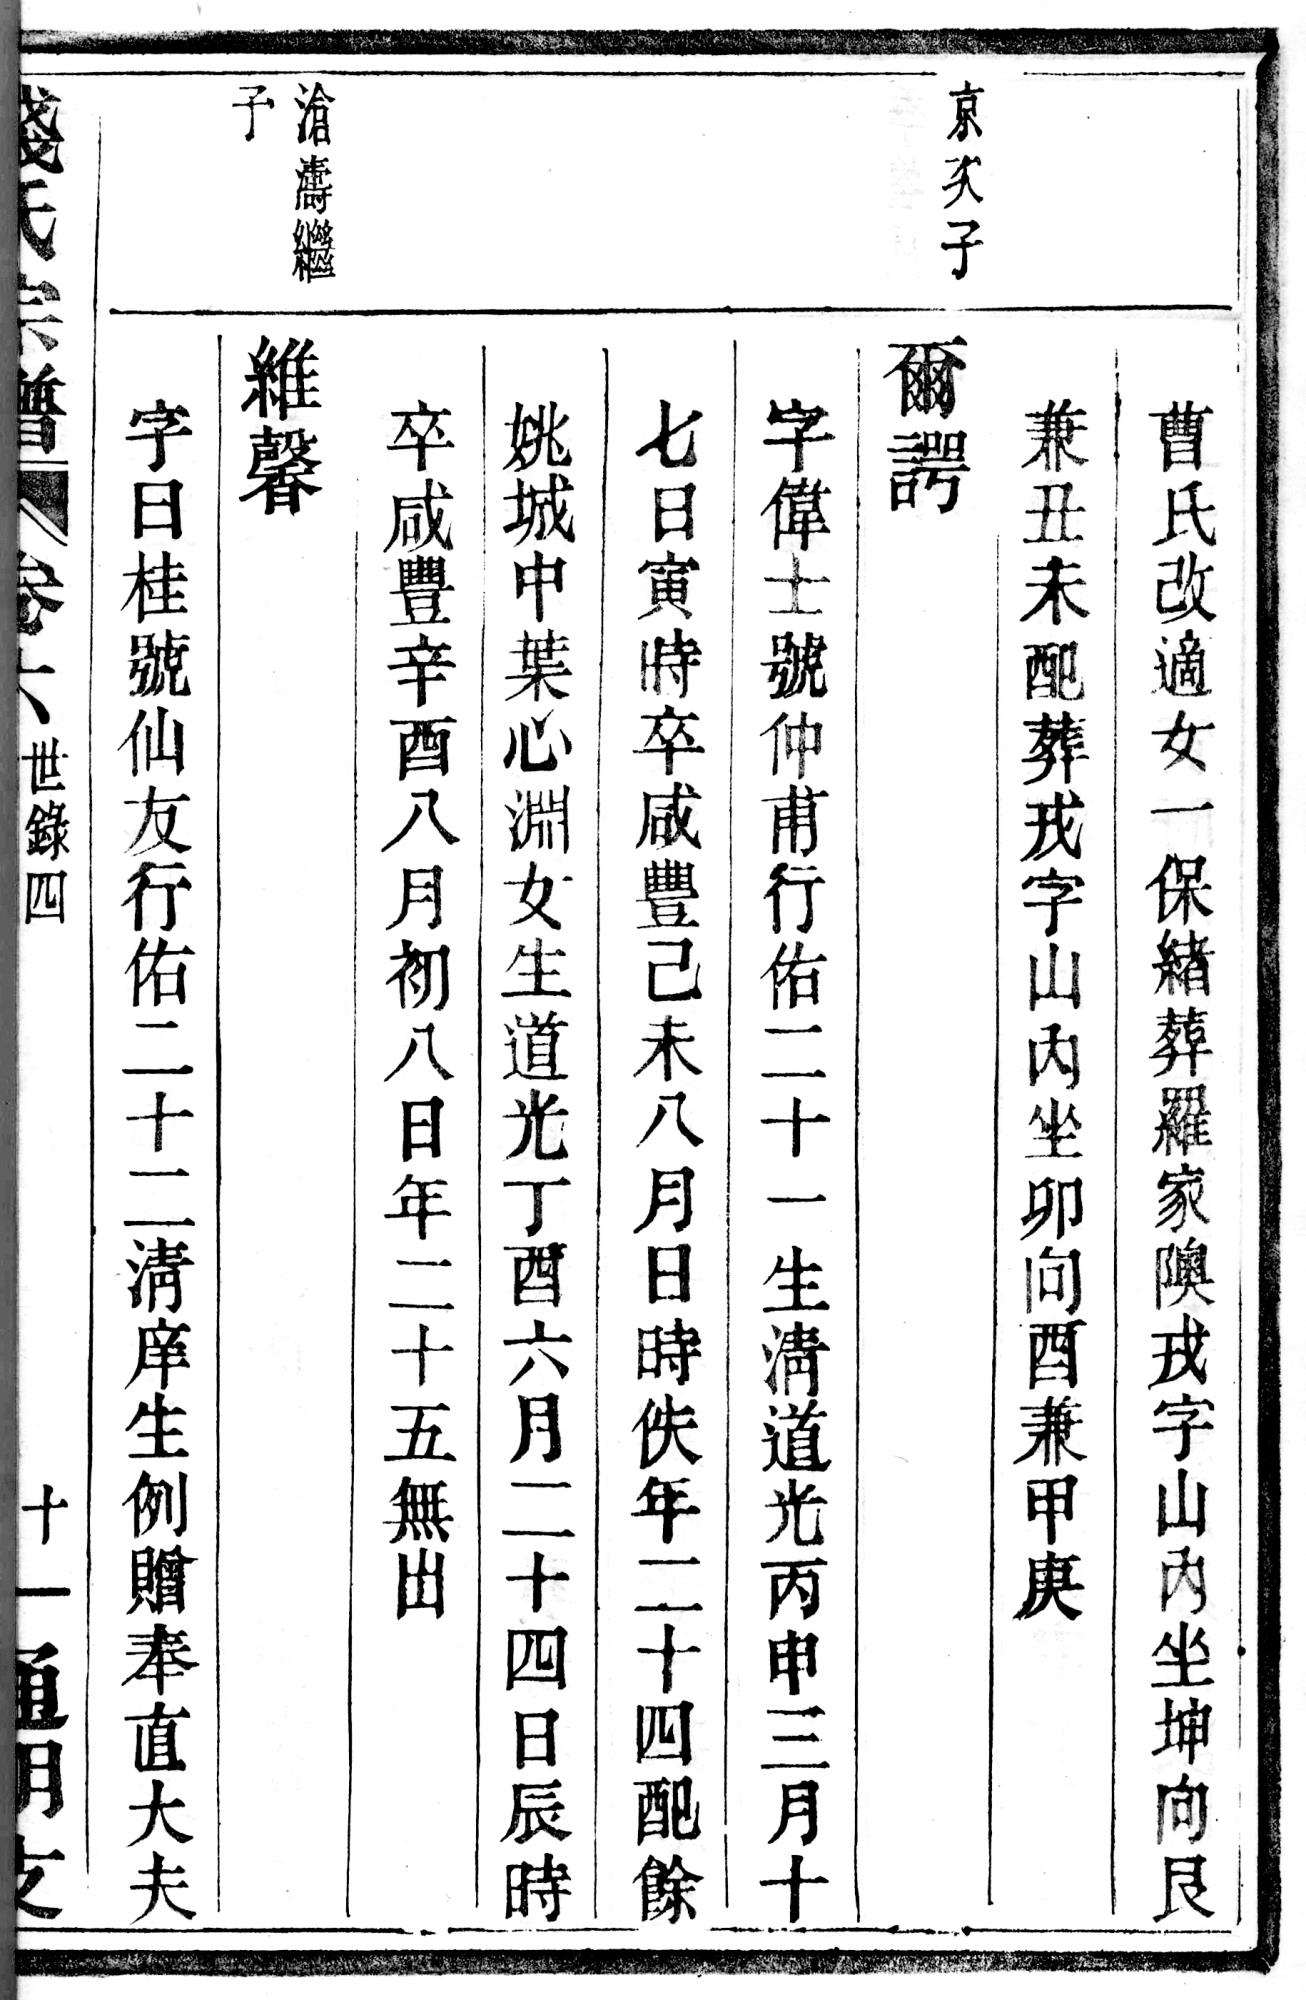 曹氏改適女一保緒葬羅家隩戎字山內坐坤向艮
兼丑未配葬戎字山內坐卯向酉兼甲庚
京次子
爾諤
字偉士號仲甫行佑二十一生淸道光丙申三月十
七日寅時卒咸豐己未八月日時佚年二十四配餘
姚城中葉心淵女生道光丁酉六月二十四日辰時
卒咸豐辛酉八月初八日年二十五無出
滄濤繼
子
維馨
字曰桂號仙友行佑二十二淸庠生例贈奉直大夫
錢氏宗譜 卷六 世錄四 十一 通明支